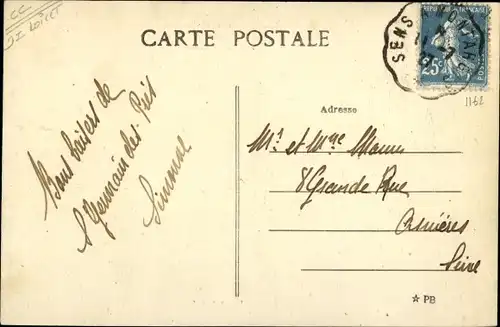 CC
CARTE POSTALE
SENS A MONTARGIS
REPUBLIQUE FRANÇAISE
25c
1162
Adresse
Bons baisers de
St Germain des Prés
Simonne
Mr et Mme
8 Grande Rue
Asnières
Seine
★ PB